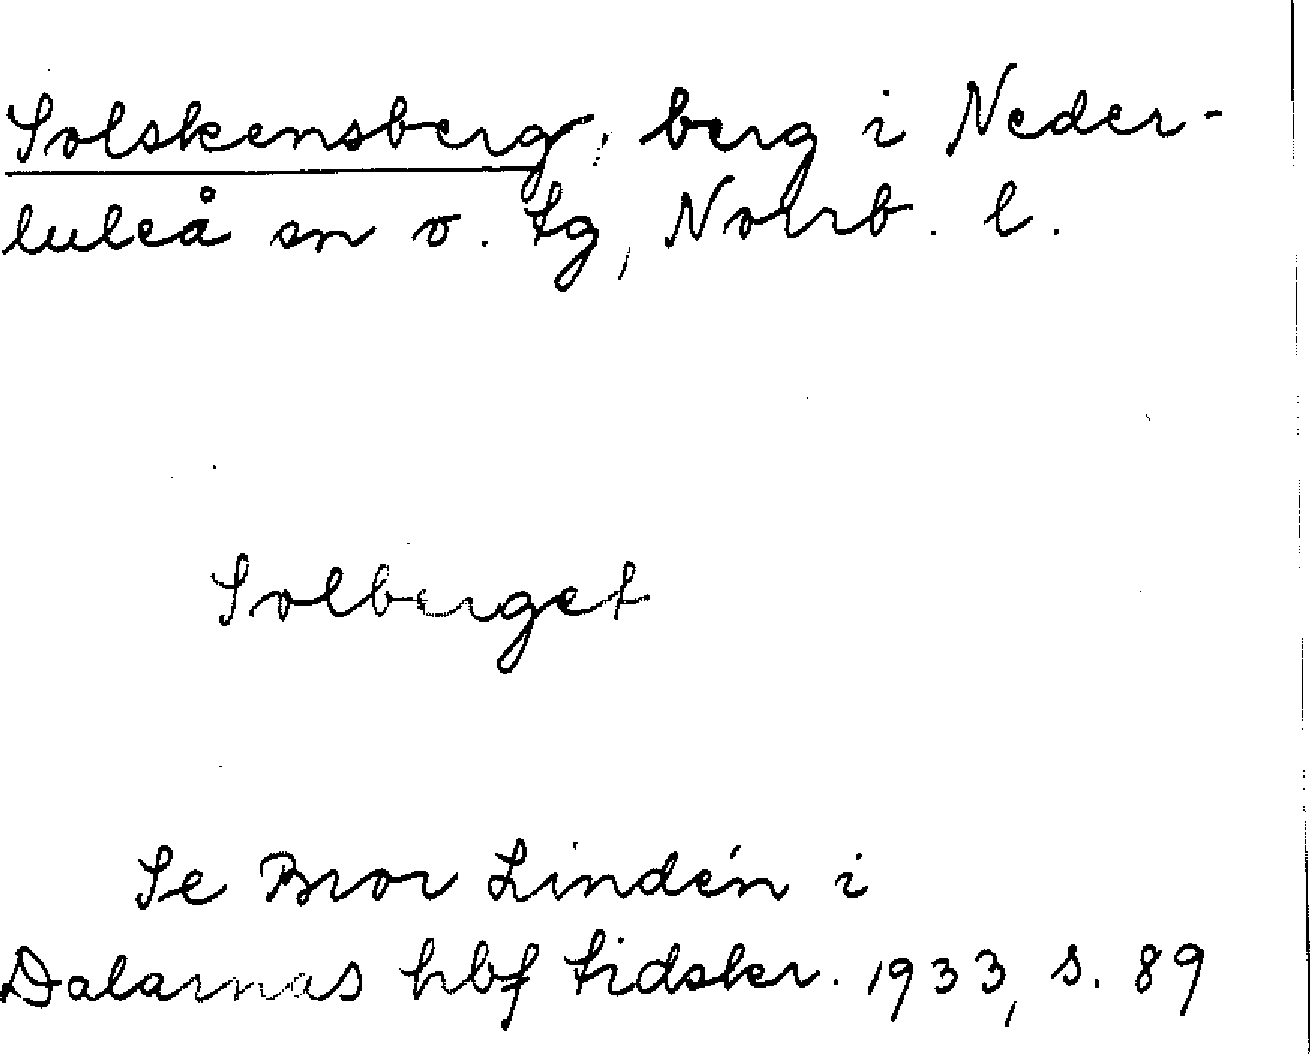 Solskensberg, berg i Neder-
luleå sn o. tg, Norrb. l.
Solberget
Se Bror Lindén i
Dalarnas hbf tidskr. 1933, s. 89